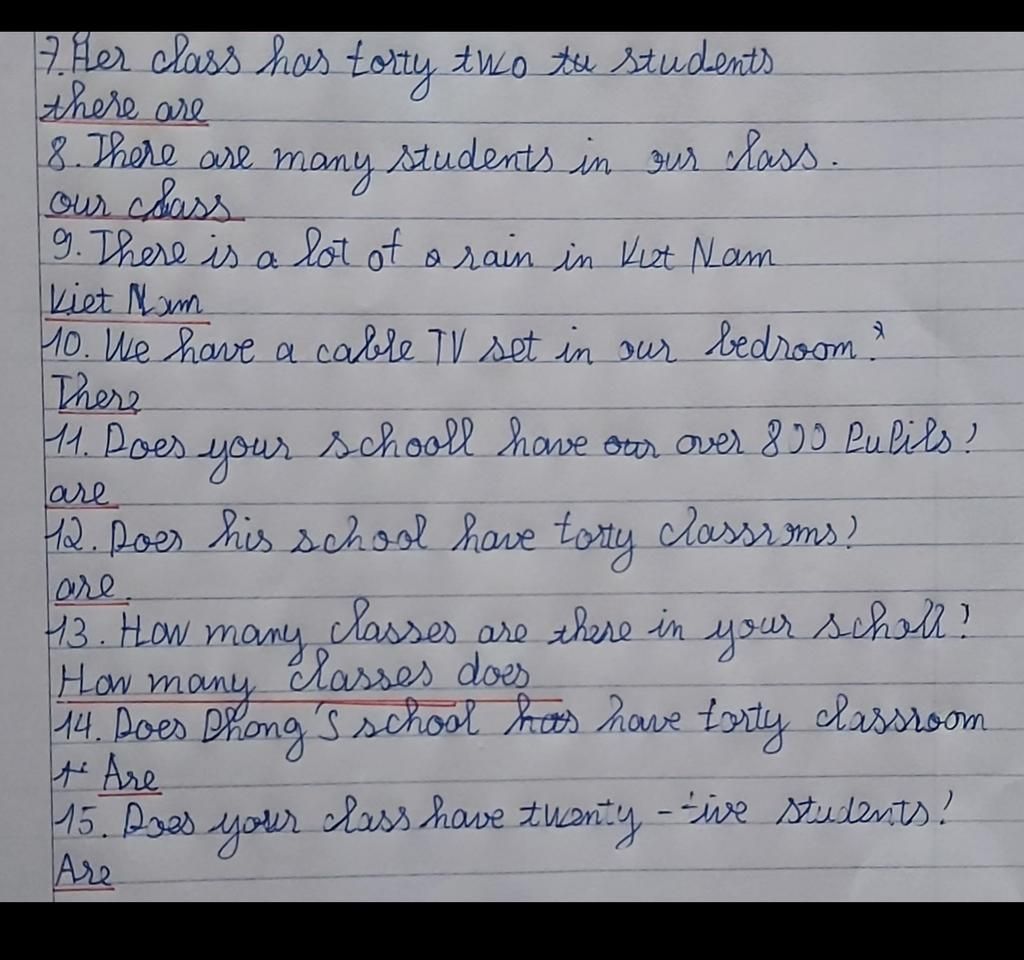 7. Her class has forty two tu students
there are
8. There are many students in our class.
our class
9. There is a lot of a rain in Viet Nam
Viet Nam
10. We have a cable TV set in our bedroom.
There
11. Does your schooll have our over 800 Pupils?
are
12. Does his school have forty classroms?
are.
13. How many classes are there in your scholl?
How many classes does
14. Does Phong's school has have forty classroom
Are
15. Does your class have twenty - five students?
Are